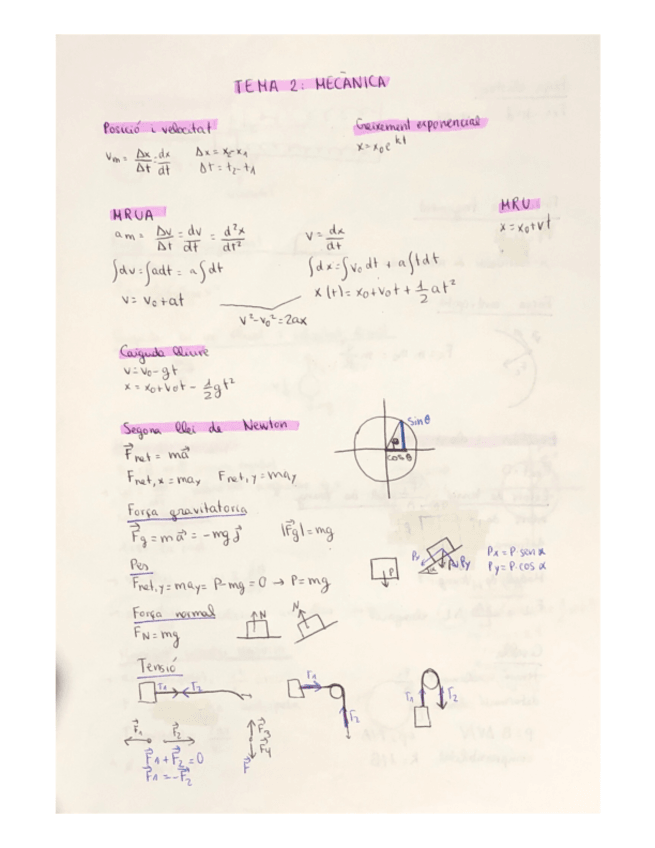 TEMA 2: MECÀNICA
Posició i velocitat
Vm = Δx/Δt = dx/dt
Δx = x2-x1
Δt = t2-t1
Creixement exponencial
x = x0 e^kt
MRUA
am = Δv/Δt = dv/dt = d²x/dt²
∫dv = ∫adt = a∫dt
v = v0 + at
v = dx/dt
∫dx = ∫v0 dt + a∫tdt
x(t) = x0 + v0t + 1/2 at²
v² - v0² = 2ax
MRU
x = x0 + vt
Caiguda lliure
v = v0 - gt
x = x0 + v0t - 1/2 gt²
Segona llei de Newton
F⃗net = ma⃗
Fnet,x = max Fnet,y = may
sinθ
θ
cosθ
Força gravitatòria
F⃗g = ma⃗ = -mg j⃗ |F⃗g| = mg
Pes
Fnet,y = may = P - mg = 0 → P = mg
P
Px
Py
Px = P sin α
Py = P cos α
Força normal
FN = mg
N
N
Tensió
T1 T2
T1
T2
T1 T2
F⃗1 F⃗2
F⃗1 + F⃗2 = 0
F⃗1 = -F⃗2
F⃗3
F⃗4
F⃗